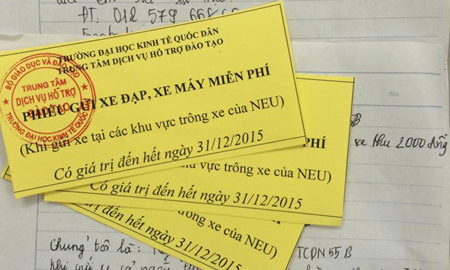 ĐT. 012 579 66868
TRƯỜNG ĐẠI HỌC KINH TẾ QUỐC DÂN
TRUNG TÂM DỊCH VỤ HỖ TRỢ ĐÀO TẠO
BỘ GIÁO DỤC VÀ ĐÀO TẠO
TRUNG TÂM
DỊCH VỤ HỖ TRỢ
ĐÀO TẠO
TRƯỜNG ĐẠI HỌC KINH TẾ QUỐC
PHIẾU GỬI XE ĐẠP, XE MÁY MIỄN PHÍ
(Khi gửi xe tại các khu vực trông xe của NEU)
Có giá trị đến hết ngày 31/12/2015
B
PHÍ
xe thu 2000 đồng
vực trông xe của NEU)
Có giá trị đến hết ngày 31/12/2015
trông xe của NEU)
đến hết ngày 31/12/2015
Chúng tôi là:
TCDN 55B